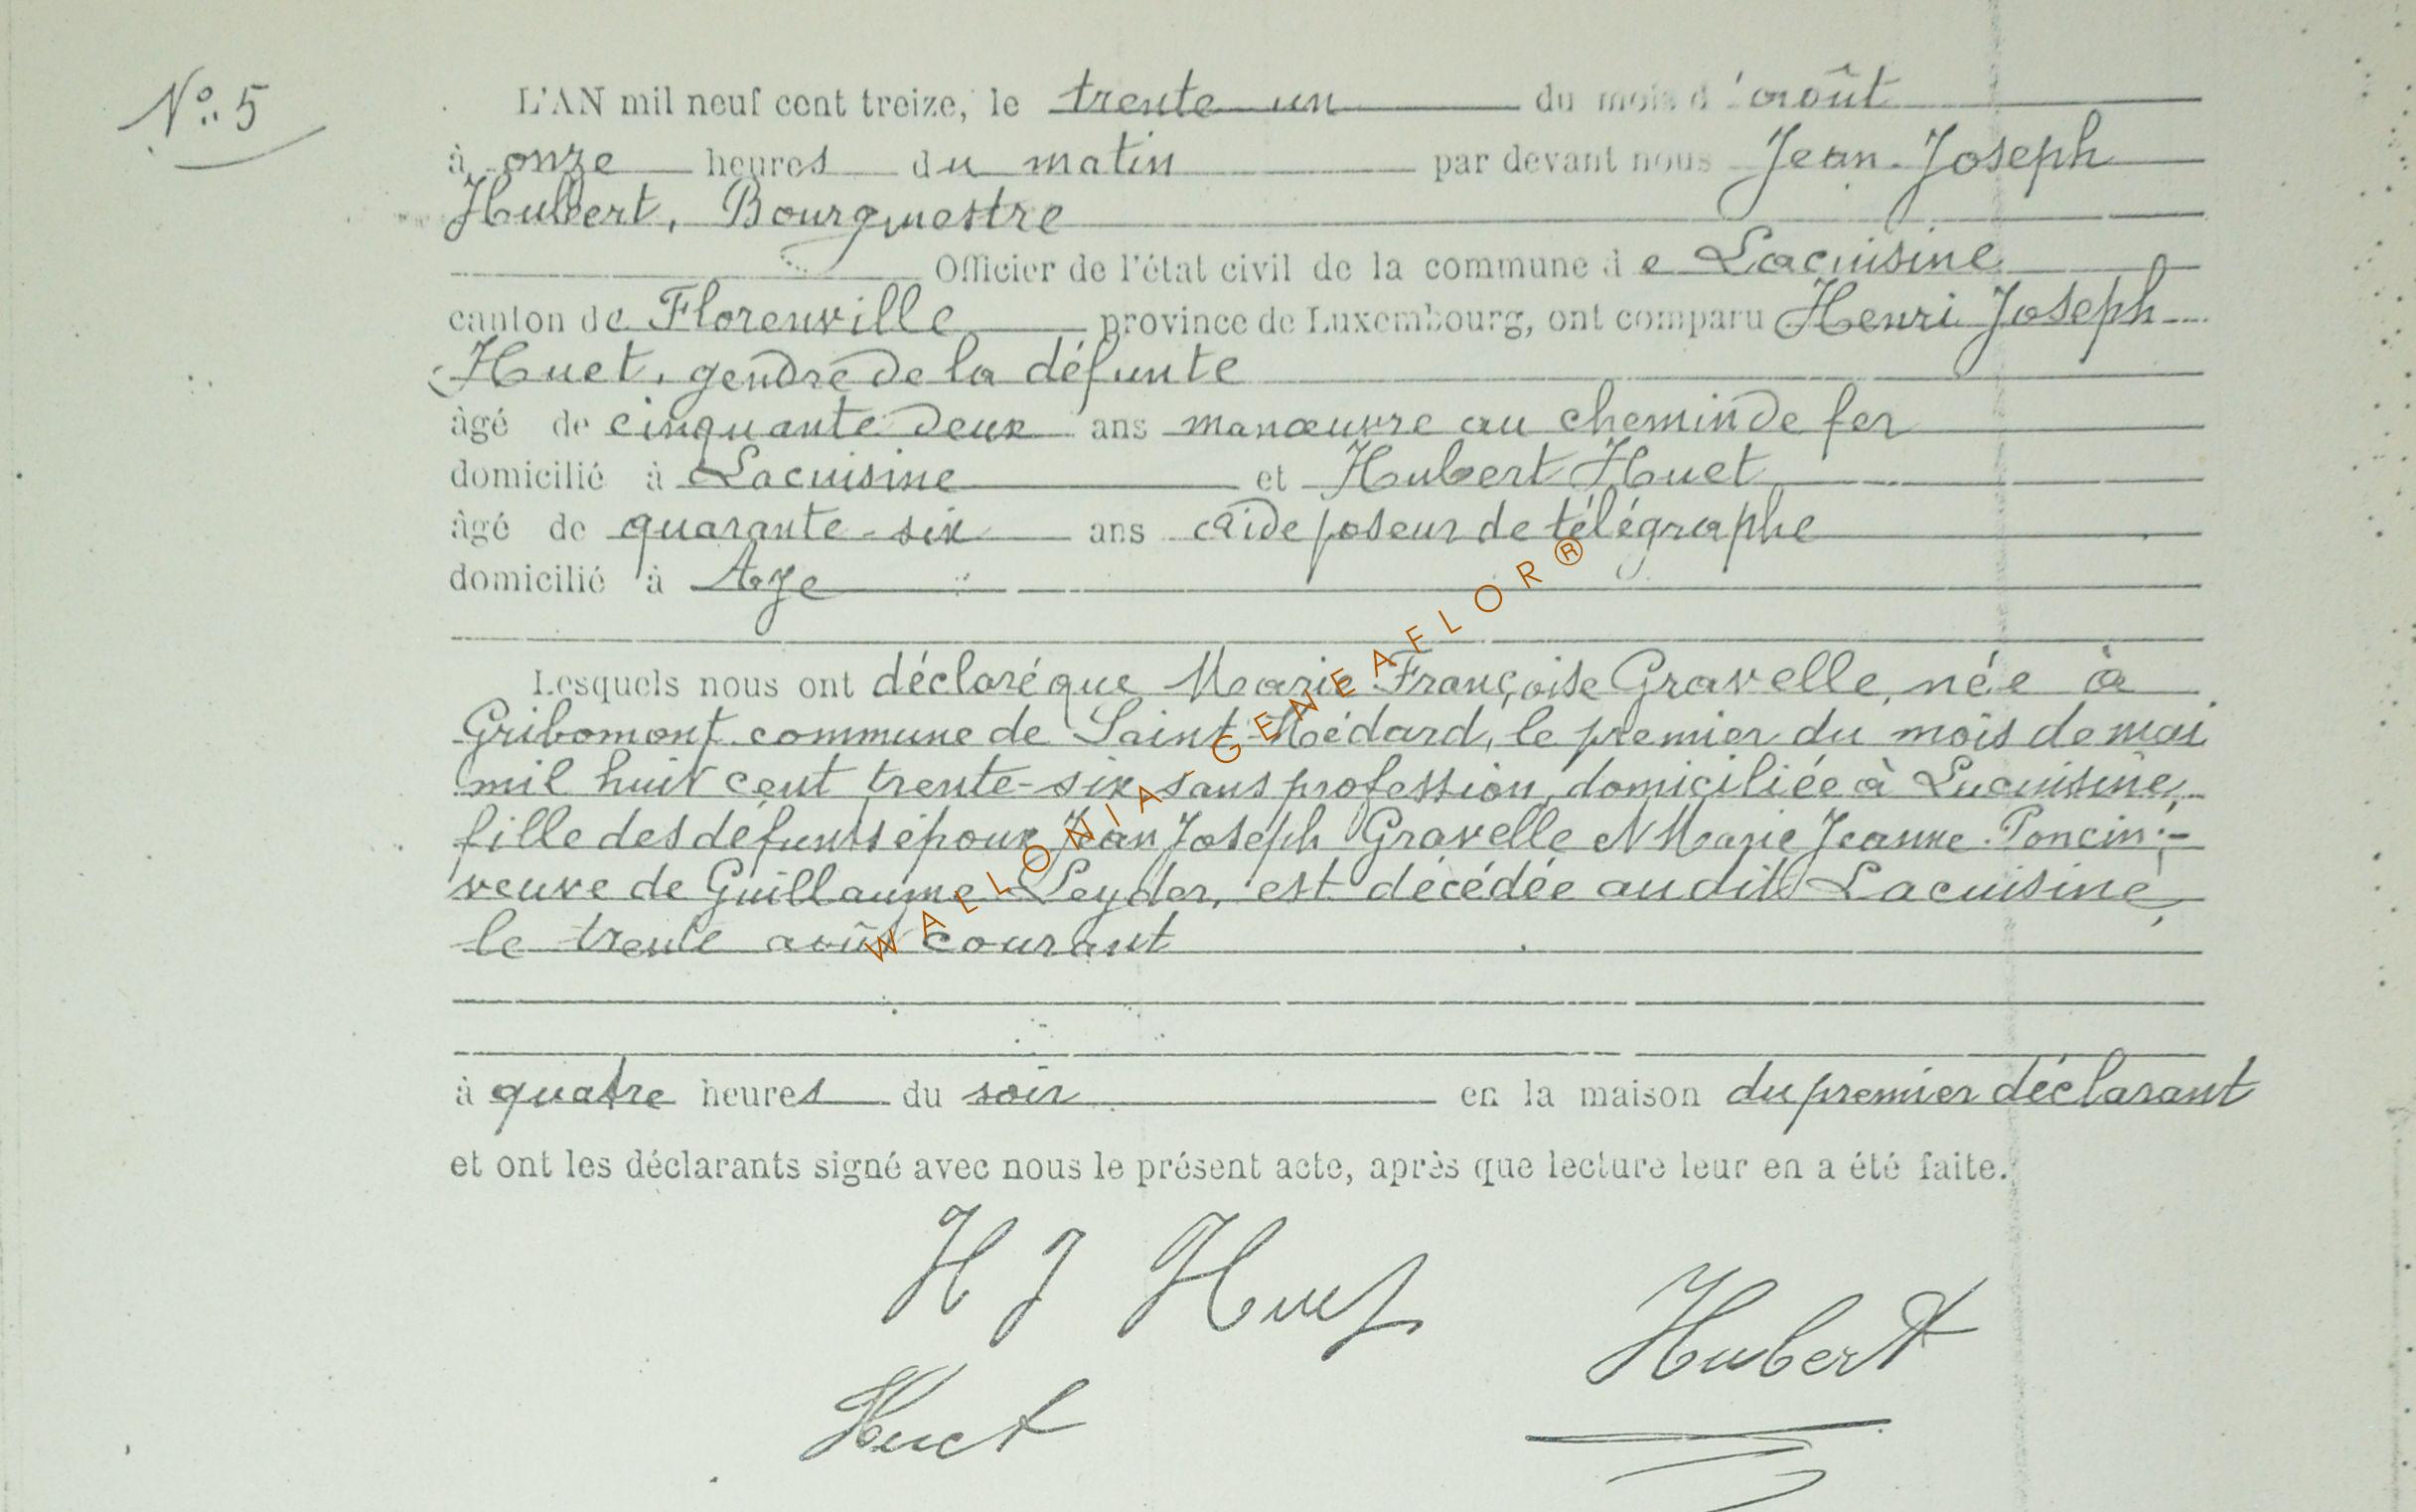 N° 5
L'AN mil neuf cent treize, le trente un du mois d'août
à onze heures du matin par devant nous Jean-Joseph
Hubert, Bourgmestre
Officier de l'état civil de la commune de Lacuisine
canton de Florenville province de Luxembourg, ont comparu Henri Joseph
Huet, gendre de la défunte
âgé de cinquante deux ans manœuvre au chemin de fer
domicilié à Lacuisine et Hubert Huet
âgé de quarante-six ans aide poseur de télégraphe
domicilié à Aye
Lesquels nous ont déclaré que Marie Françoise Gravelle, née à
Gribomont commune de Saint-Médard, le premier du mois de mai
mil huit cent trente-six, sans profession, domiciliée à Lacuisine,
fille des défunts époux Jean Joseph Gravelle et Marie Jeanne Poncin;-
veuve de Guillaume Leyder, est décédée au dit Lacuisine,
le trente août courant
à quatre heures du soir en la maison du premier déclarant
et ont les déclarants signé avec nous le présent acte, après que lecture leur en a été faite.
H J Huet
Hubert
Huet
WALLONIA-GENEAFLOR®